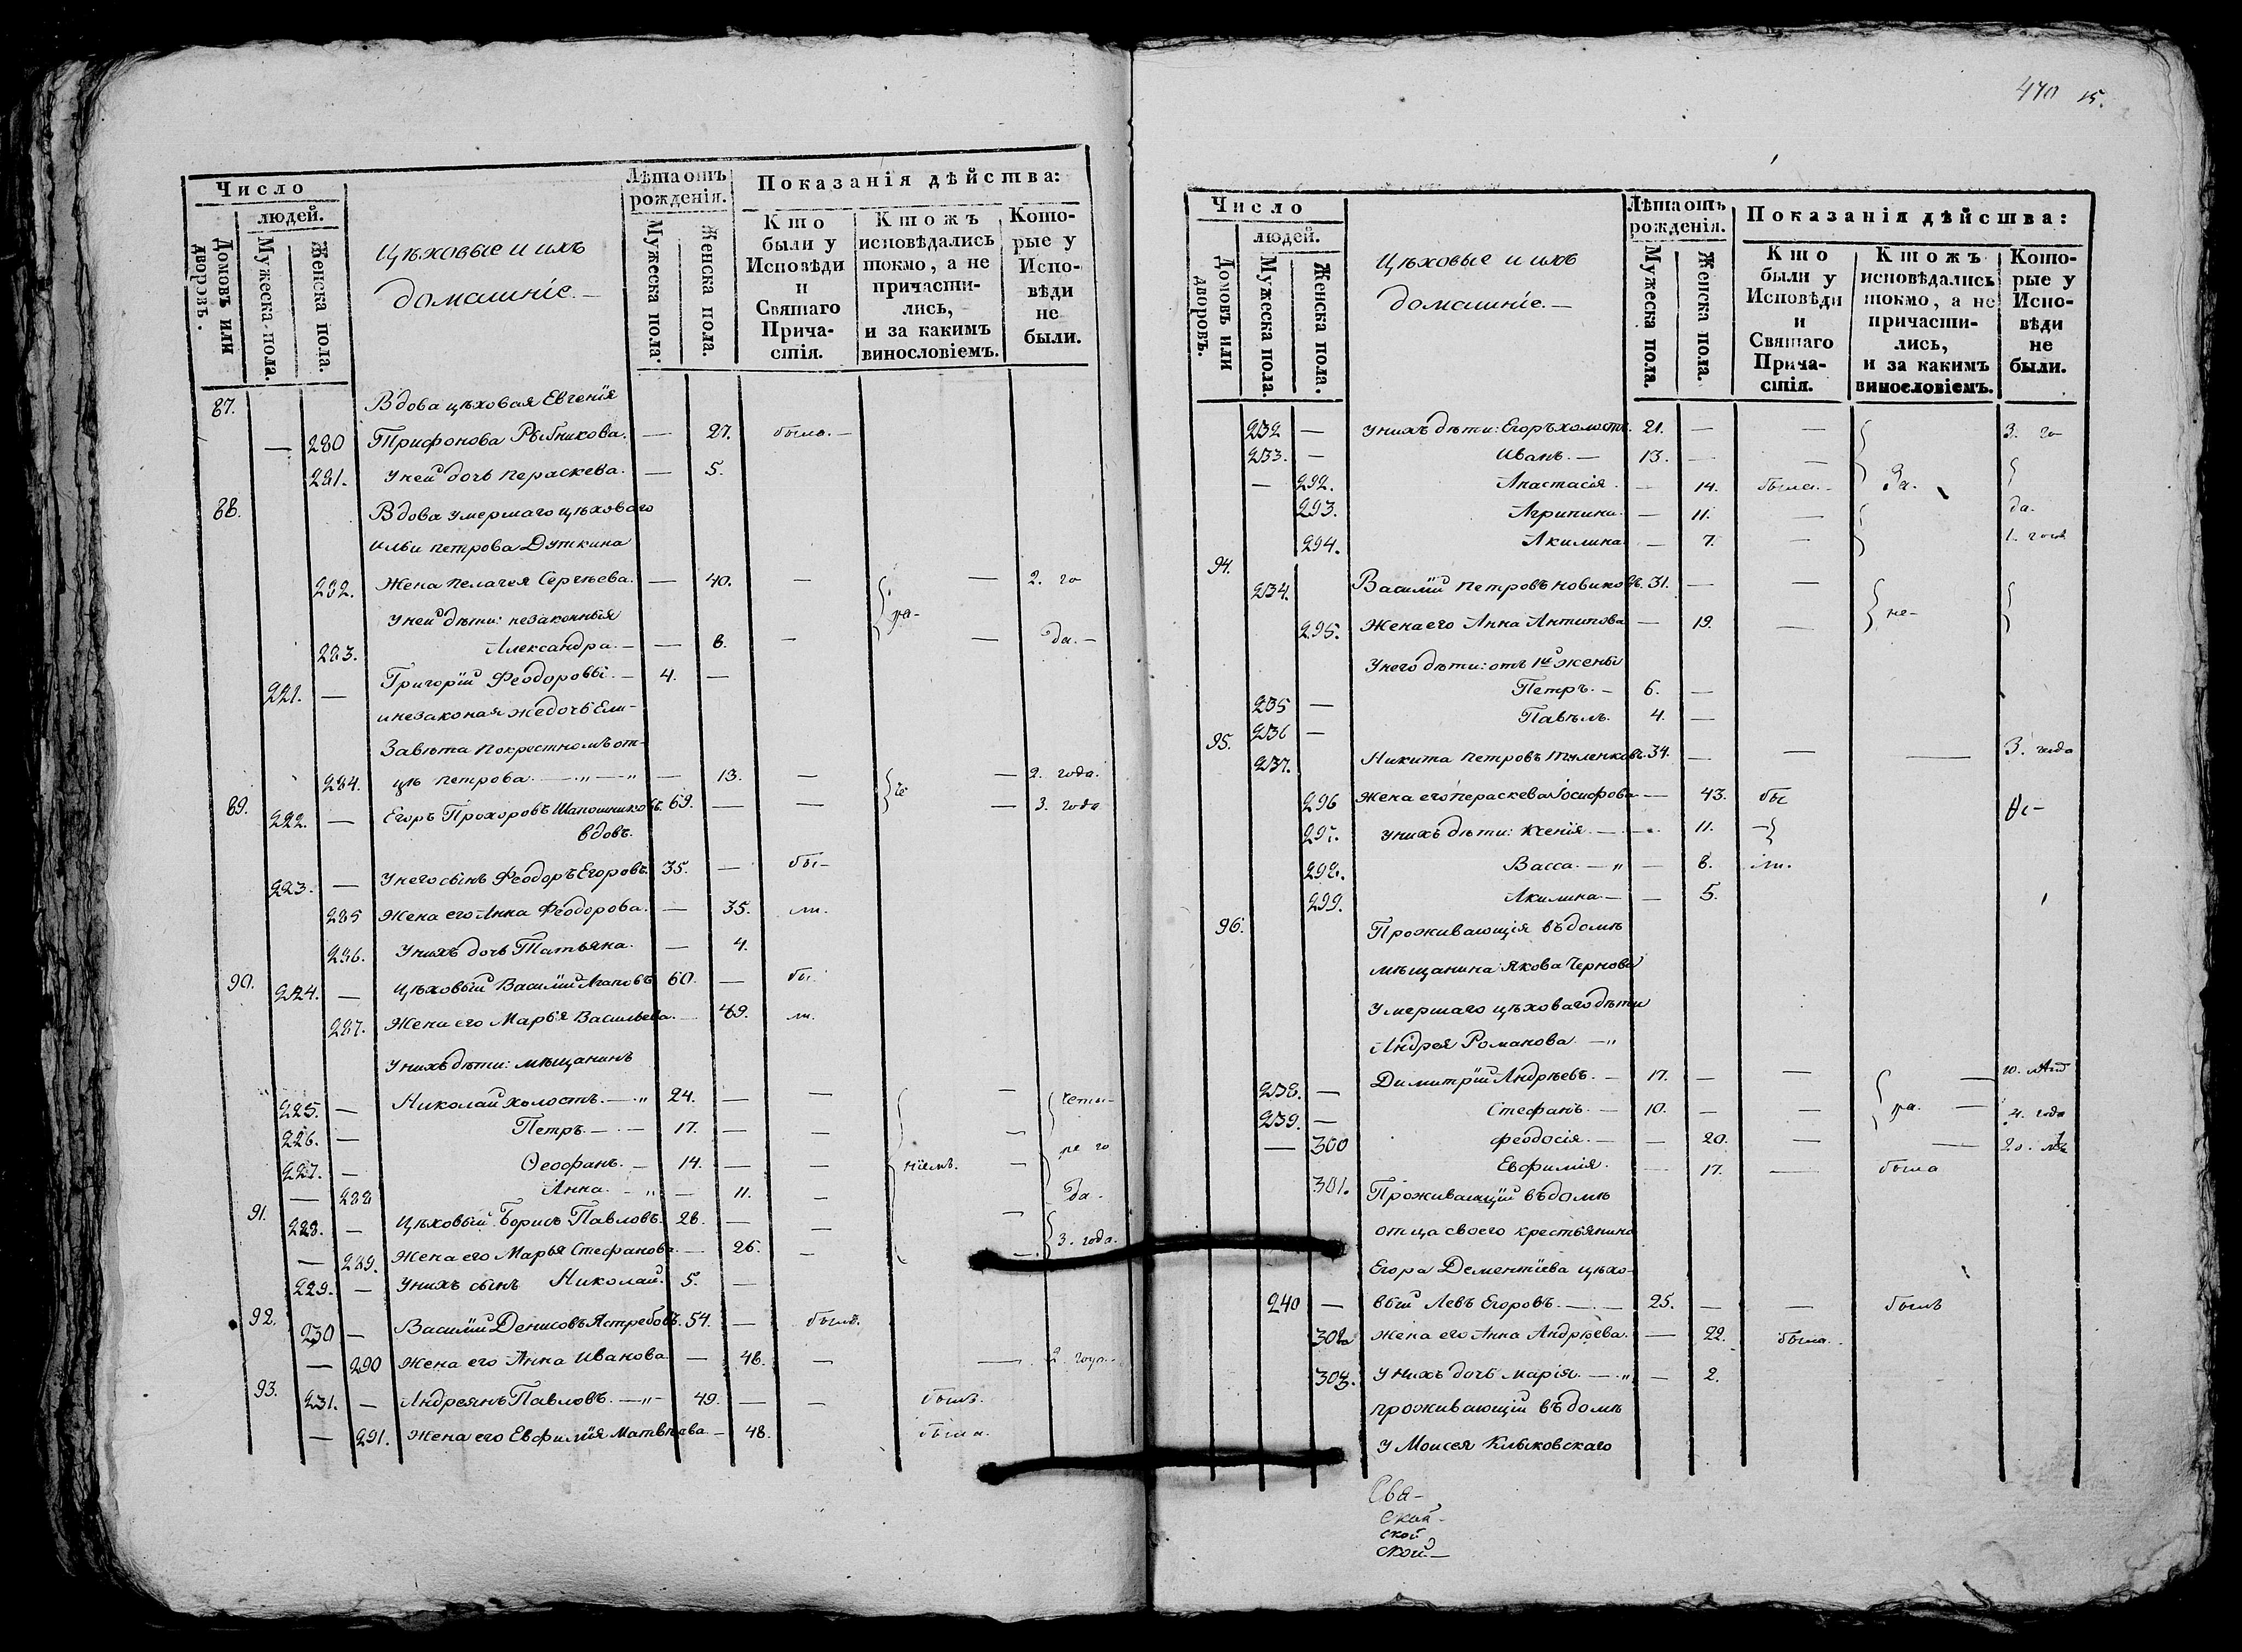 Число
людей.
Домовъ или дворовъ.
Мужеска пола.
Женска пола.
Цѣховые и ихъ
домашніе. —
Лѣта отъ
рожденія.
Мужеска пола.
Женска пола.
Показанія дѣйства:
Кто были у Исповѣди и Святаго Прича-стія.
Ктожъ исповѣдались токмо, а не причасти-лись, и за какимъ винословіемъ.
Кото-рые у Испо-вѣди не были.
87. Вдова цѣховая Евгенія
— 280 Трифонова Рыбникова. — 27. была. —
281. У ней дочь Пераскева. — 5.
88. Вдова умершаго цѣховаго
Ильи Петрова Дуткина
282. Жена Пелагея Сергѣева. — 40. — — 2. го
У ней дѣти: незаконныя ра-
283. Александра. — — 8. — — да. —
221. — Григорій Феодоровы. — 4. —
и незаконая же дочь Ели-
Завѣта по крестномъ от-
284. цѣ Петрова. — „ — „ — 13. — — 2. года.
89. 222. — Егоръ Прохоровъ Шапошниковъ 69. — — — 3. года
вдовъ.
223. — У него сынъ Феодоръ Егоровъ. 35. — бы-
285 Жена его Анна Феодорова. — 35. ли.
286. У нихъ дочь Татьяна. — 4.
90. 224. — Цѣховый Василий Агаповъ 60. — бы
287. Жена его Марья Васильева. — 49. ли.
У нихъ дѣти: мѣщанинъ
225. — Николай холостъ. — „ 24. — — — четы-
226. — Петръ. — — 17. — — —
227. — Ѳеофанъ. — 14. — — нiемъ. — ре го
— 288 Анна. — „ — 11. — да.
91. 228. — Цѣховый Борисъ Павловъ. 28. — — —
— 289. Жена его Марья Стефанова — 26. — — 3. года.
229. — У нихъ сынъ Николай. 5. —
92. 230 — Василий Денисовъ Ястребовъ. 54. — былъ.
— 290 Жена его Анна Иванова — 46. — — 2. года
93. 231. — Андреянъ Павловъ. — „ — 49. — — былъ.
— 291. Жена его Евфимія Матвѣева — 48. была.
470 15.
Число
людей.
Домовъ или дворовъ.
Мужеска пола.
Женска пола.
Цѣховые и ихъ
домашніе. —
Лѣта отъ
рожденія.
Мужеска пола.
Женска пола.
Показанія дѣйства:
Кто были у Исповѣди и Святаго Прича-стія.
Ктожъ исповѣдались токмо, а не причасти-лись, и за какимъ винословіемъ.
Кото-рые у Испо-вѣди не были.
232 — У нихъ дѣти: Егоръ холостъ. 21. — — 3. го
233. — Иванъ. — 13. — —
— 292. Анастасія. — 14. была. — За.
293. Агрипина. — 11. — да.
294. Акилина. — 7. — 1. годъ
94. 234. Василий Петровъ Новиковъ. 31. — —
295. Жена его Анна Антипова — 19. — не-
У него дѣти: отъ 1й жены
235 — Петръ. — 6. —
236 — Павелъ. 4. —
95. 237. Никита Петровъ Тюленковъ. 34. — — — 3. года
296 Жена его Пераскева Іосифова — 43. бы
297. У нихъ дѣти: Ксенія. — — 11. —
298. Васса. — „ — 8. ли.
299. Акилина. — — 5.
96. Проживающія въ домѣ
мѣщанина Якова Чернова
Умершаго цѣховаго дѣти
Андрея Романова — „
238. — Димитрій Андрѣевъ. — 17. — — — 10. лѣтъ
239. — Стефанъ. — 10. — — ра. — 4. года
— 300 Феодосія. — — 20. — —
301. Евфимія. — 17. — была
Проживающій въ домѣ
отца своего крестьянина
Егора Дементіева цѣхо-
240 — вый Левъ Егоровъ. — — 25. — — былъ
302 Жена его Анна Андрѣева. — 22. была.
303. У нихъ дочь Марія. — „ — 2.
проживающій въ домѣ
У Моисея Клыковскаго
ской
ской —